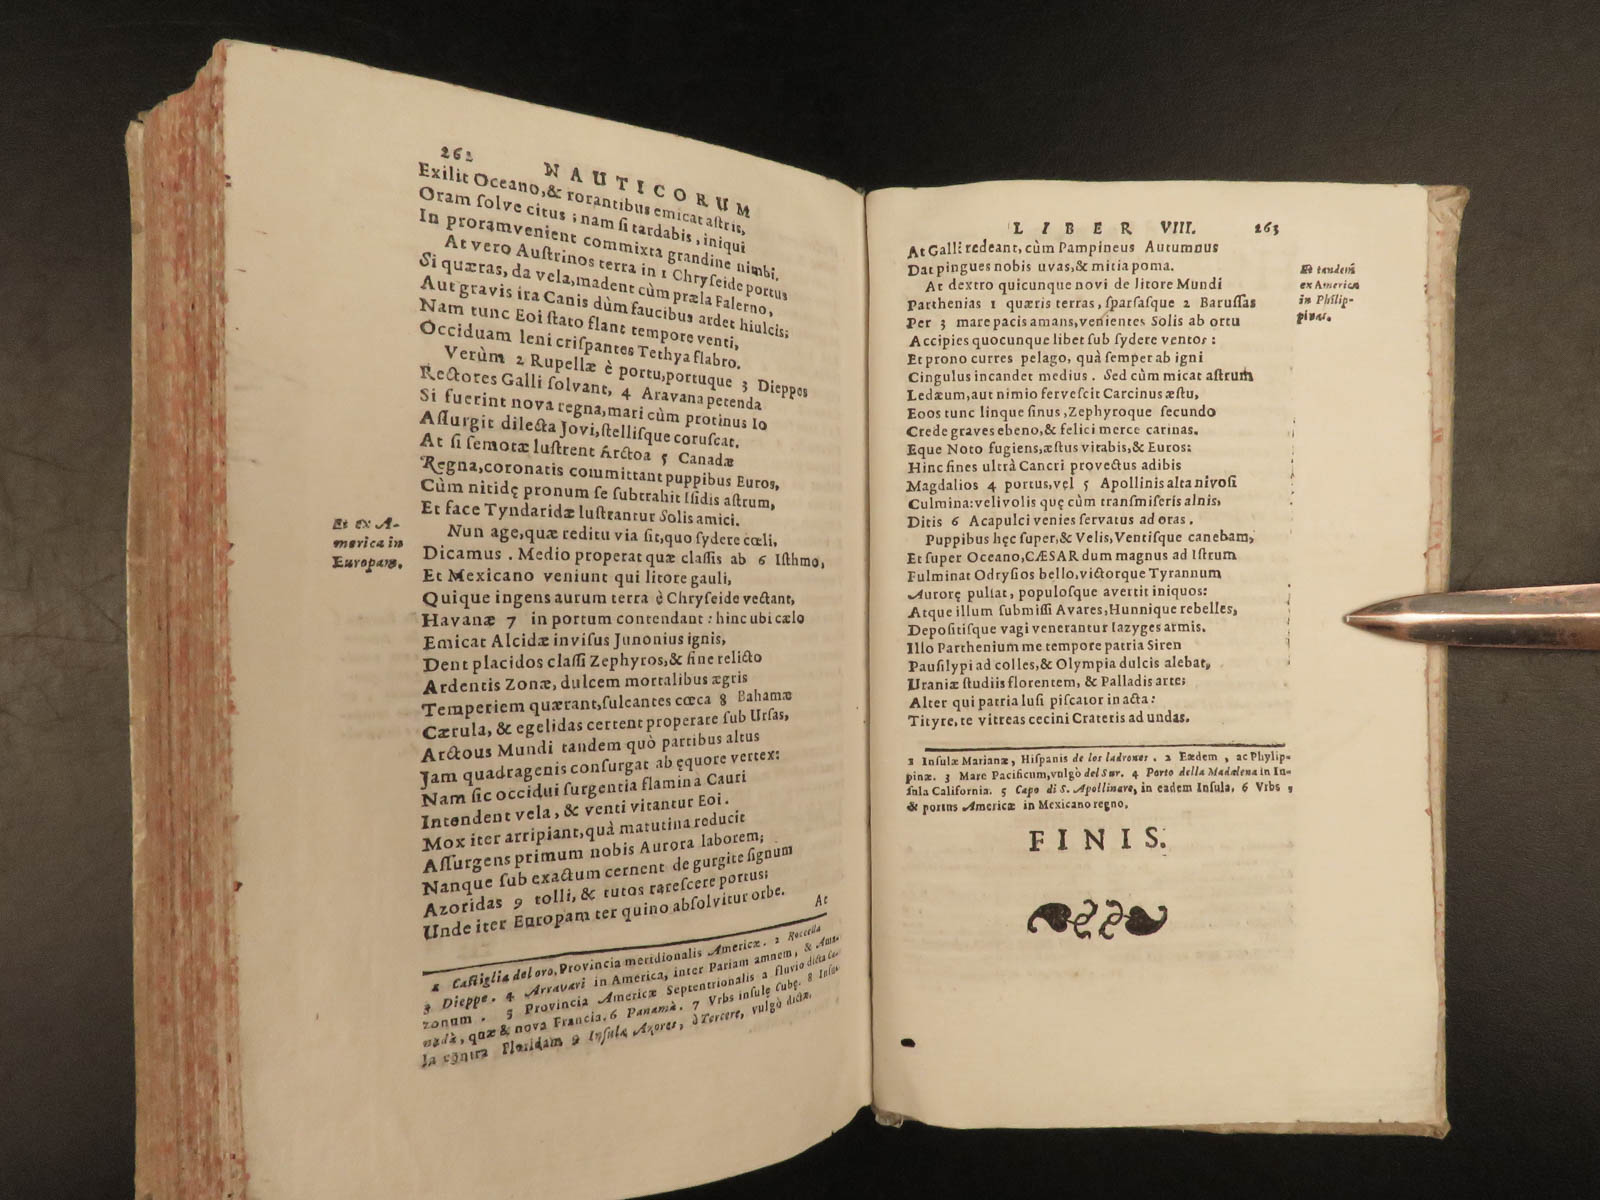 262 NAUTICORUM
Exilit Oceano,& rorantibus emicat aſtris,
Oram ſolve citus ; nam ſi tardabis , iniqui
In proram venient commixta grandine nimbi.
At vero Auſtrinos terra in 1 Chryſeide portus
Si quæras, da vela, madent cùm præla Falerno,
Aut gravis ira Canis dùm faucibus ardet hiulcis;
Nam tunc Eoi ſtato flant tempore venti,
Occiduam leni criſpantes Tethya flabro.
Verùm 2 Rupellæ è portu,portuque 3 Dieppes
Rectores Galli ſolvant, 4 Aravana petenda
Si fuerint nova regna,mari cùm protinus Io
Aſſurgit dilecta Jovi,ſtelliſque coruſcat.
At ſi ſemotæ luſtrent Arctoa 5 Canadæ
Regna,coronatis committant puppibus Euros,
Cùm nitidę pronum ſe ſubtrahit Iſidis aſtrum,
Et face Tyndaridæ luſtrantur Solis amici.
Nun age,quæ reditu via ſit,quo ſydere cœli,
Et ex A-
merica in
Europam.
Dicamus . Medio properat quæ claſſis ab 6 Iſthmo,
Et Mexicano veniunt qui litore gauli,
Quique ingens aurum terra è Chryſeide vectant,
Havanæ 7 in portum contendant : hinc ubi cælo
Emicat Alcidæ inviſus Junonius ignis,
Dent placidos claſſi Zephyros,& fine relicto
Ardentis Zonæ, dulcem mortalibus ægris
Temperiem quærant,ſulcantes cœca 8 Bahamæ
Cærula, & egelidas certent properare ſub Urſas,
Arctous Mundi tandem quò partibus altus
Jam quadragenis conſurgat ab ęquore vertex:
Nam ſic occidui ſurgentia flamina Cauri
Intendent vela, & venti vitantur Eoi.
Mox iter arripiant,quà matutina reducit
Aſſurgens primum nobis Aurora laborem;
Nanque ſub exactum cernent de gurgite ſignum
Azoridas 9 tolli, & tutos rareſcere portus;
Unde iter Europam ter quino abſolvitur orbe.
At
1 Caſtiglia del oro, Provincia meridionalis Americæ. 2 Roccella
3 Dieppe. 4 Arravari in America, inter Pariam amnem, & Ama-
zonum . 5 Provincia Americæ Septentrionalis a fluvio dicta Ca-
nadà, quæ & nova Francia. 6 Panamà. 7 Vrbs inſulę Cubę. 8 Inſu-
la contra Floridam 9 Inſulæ Azores, ò Tercere, vulgò dictæ.
LIBER VIII. 263
At Galli redeant, cùm Pampineus Autumnus
Dat pingues nobis uvas,& mitia poma.
At dextro quicunque novi de litore Mundi
Et tandem
ex America
in Philip-
pinas.
Parthenias 1 quæris terras, ſparſaſque 2 Baruſſas
Per 3 mare pacis amans, venientes Solis ab ortu
Accipies quocunque libet ſub ſydere ventos :
Et prono curres pelago, quà ſemper ab igni
Cingulus incandet medius . Sed cùm micat aſtrum
Ledæum,aut nimio ferveſcit Carcinus æſtu,
Eoos tunc linque ſinus ,Zephyroque ſecundo
Crede graves ebeno,& felici merce carinas.
Eque Noto fugiens,æſtus vitabis,& Euros:
Hinc fines ultrà Cancri provectus adibis
Magdalios 4 portus,vel 5 Apollinis alta nivoſi
Culmina: velivolis quę cùm tranſmiſeris alnis,
Ditis 6 Acapulci venies ſervatus ad oras .
Puppibus hęc ſuper,& Velis,Ventiſque canebam,
Et ſuper Oceano, CÆSAR dum magnus ad Iſtrum
Fulminat Odryſios bello,victorque Tyrannum
Aurorę pulſat, populoſque avertit iniquos:
Atque illum ſubmiſſi Avares,Hunnique rebelles,
Depoſitiſque vagi venerantur Iazyges armis.
Illo Parthenium me tempore patria Siren
Pauſilypi ad colles,& Olympia dulcis alebat,
Uraniæ ſtudiis florentem, & Palladis arte;
Alter qui patria luſi piſcator in acta:
Tityre, te vitreas cecini Crateris ad undas.
1 Inſulæ Marianæ, Hiſpanis de los ladrones . 2 Eædem , ac Phylip-
pinæ. 3 Mare Pacificum,vulgò del Sur. 4 Porto della Madalena in In-
ſula California. 5 Capo di S. Apollinare, in eadem Inſula. 6 Vrbs ,
& portus Americæ in Mexicano regno.
FINIS.